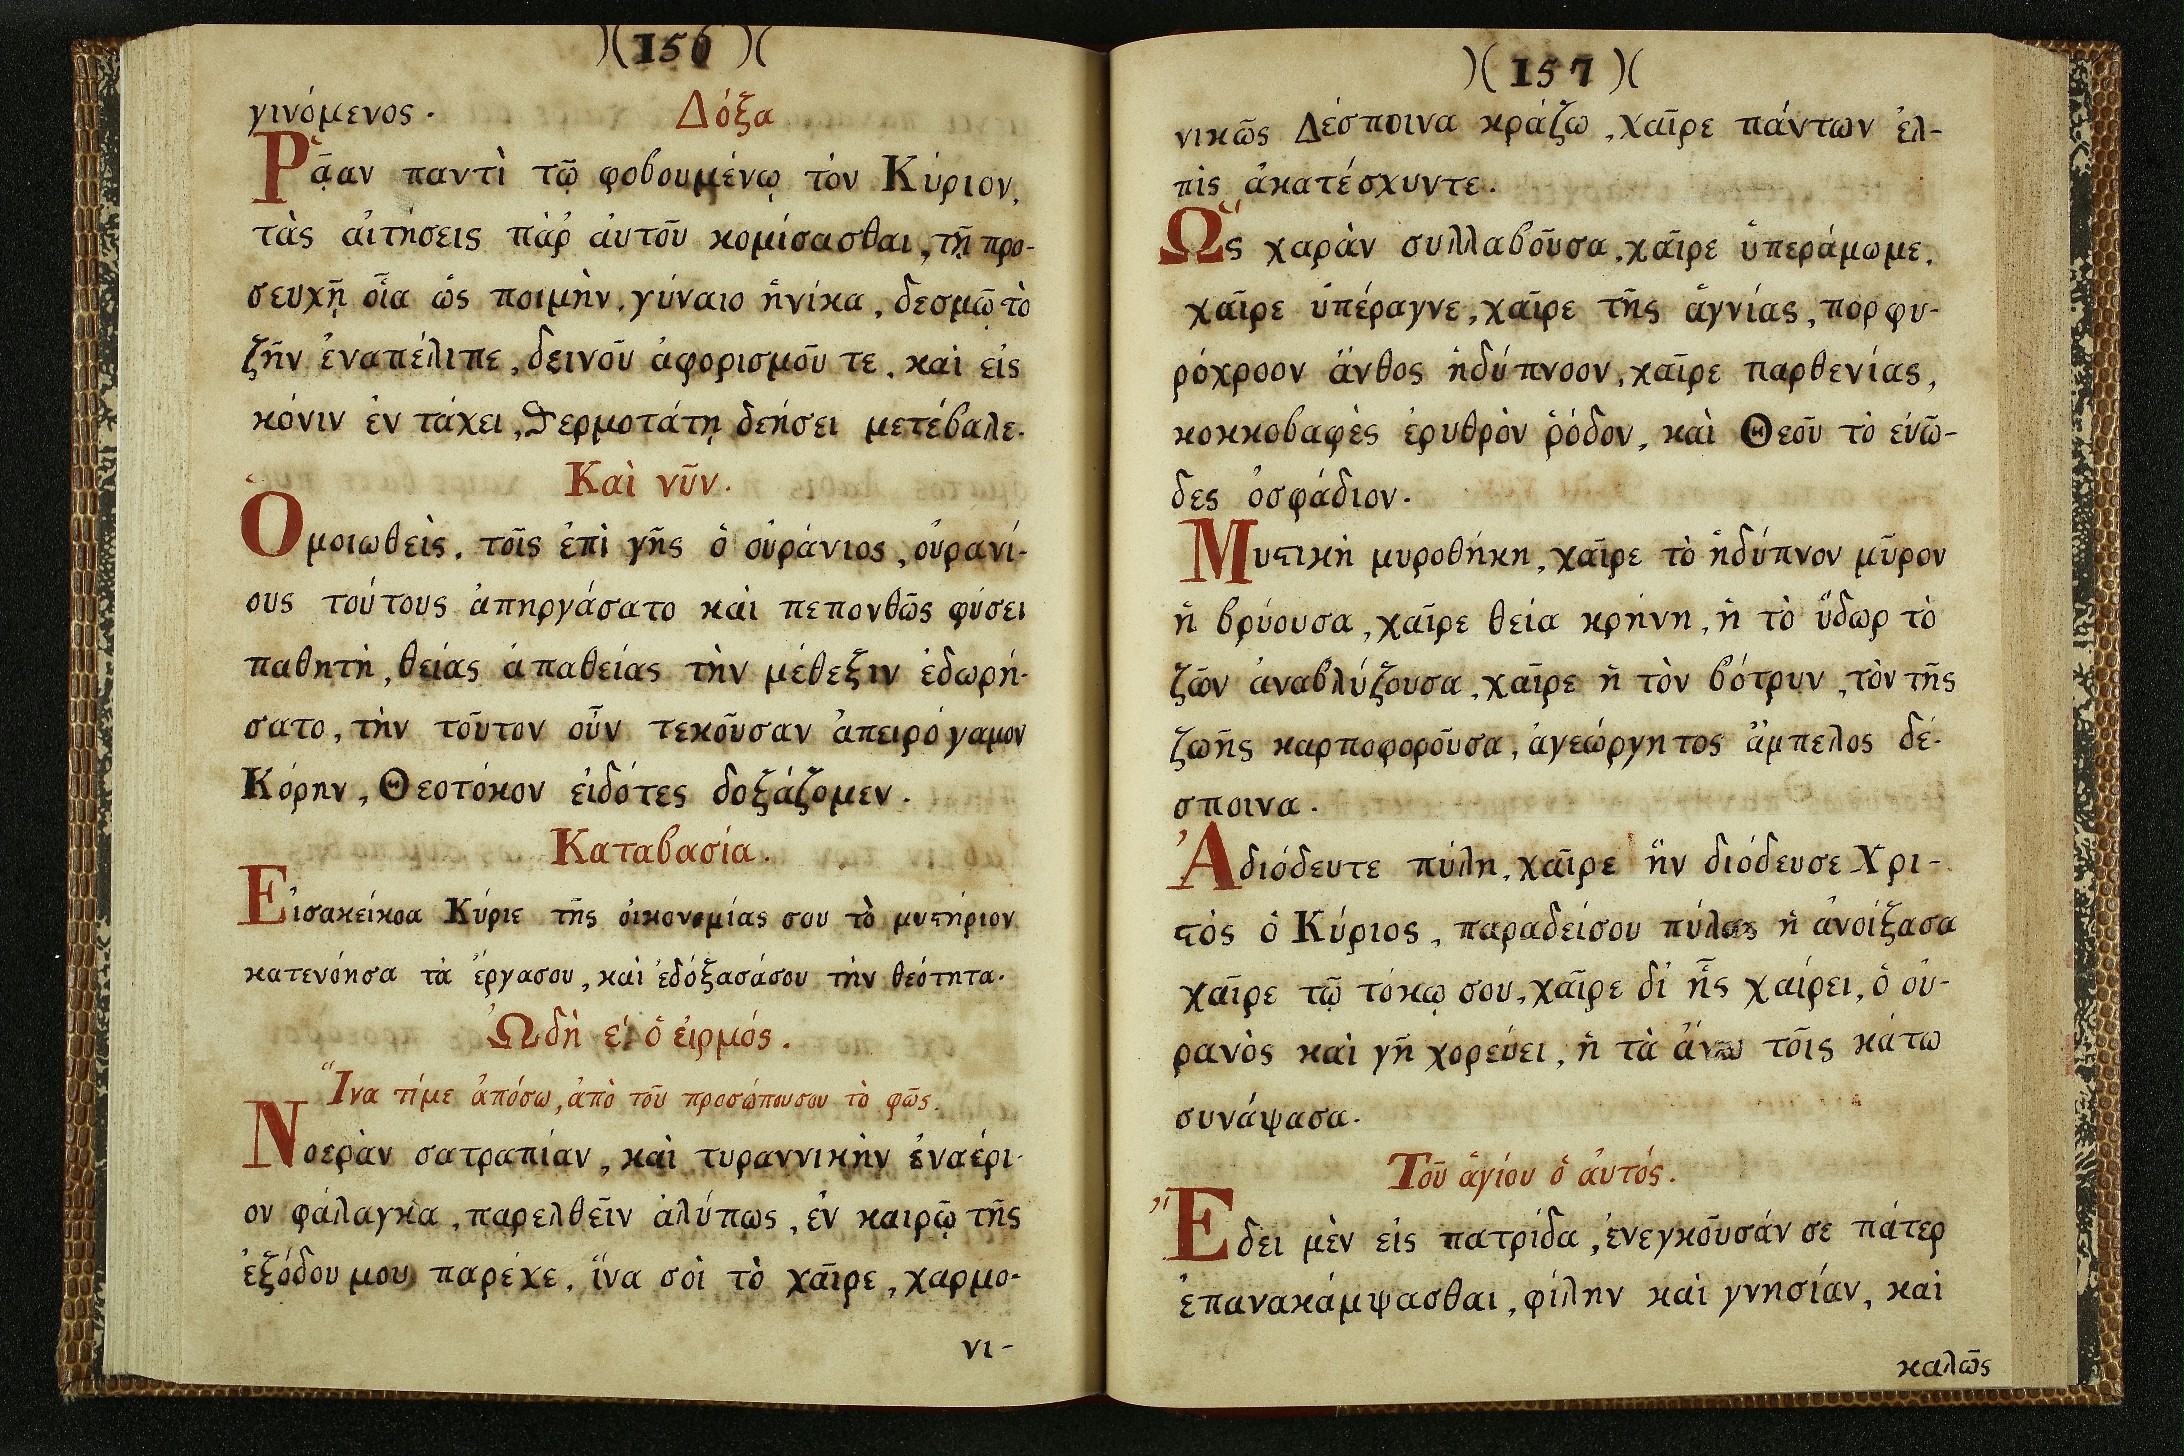 )( 156 )(
γινόμενος. Δόξα
Ρᾷαν παντὶ τῷ φοβουμένῳ τὸν Κύριον,
τὰς ἀιτήσεις πὰρ ἀυτοῦ κομίσασθαι, τῇ προ-
σευχῇ οἷα ὡς ποιμὴν, γύναιο ἡνίκα, δεσμῷ τὸ
ζῆν ἐναπέλιπε, δεινοῦ ἀφορισμοῦ τε, καὶ εἰς
κόνιν ἐν τάχει, θερμοτάτῃ δεήσει μετέβαλε.
Καὶ νῦν.
Ὁμοιωθεὶς, τοῖς ἐπὶ γῆς ὁ οὐράνιος, οὐρανί-
ους τούτους ἀπηργάσατο καὶ πεπονθῶς φύσει
παθητὴ, θείας ἀπαθείας τὴν μέθεξιν ἐδωρή-
σατο, τὴν τοῦτον οὖν τεκοῦσαν ἀπειρόγαμον
Κόρην, Θεοτόκον εἰδότες δοξάζομεν.
Καταβασία.
Εἰσακείκοα Κύριε τῆς οἰκονομίας σου τὸ μυϛήριον
κατενόησα τὰ ἔργασου, καὶ ἐδόξασάσου τὴν θεότητα.
Ὠδὴ ε΄ ὁ εἱρμός.
Ἵνα τίμε ἀπόσω, ἀπὸ τοῦ προσώπουσου τὸ φῶς.
Νοερὰν σατραπίαν, καὶ τυραννικὴν ἐναέρι-
ον φάλαγκα, παρελθεῖν ἀλύπως, ἐν καιρῷ τῆς
ἐξόδου μου παρέχε, ἵνα σοὶ τὸ χαῖρε, χαρμο-
νι-
)( 157 )(
νικῶς Δέσποινα κράζω, χαῖρε πάντων ἐλ-
πὶς ἀκατέσχυντε.
Ὡς χαρὰν συλλαβοῦσα, χαῖρε ὑπεράμωμε,
χαῖρε ὑπέραγνε, χαῖρε τῆς ἁγνίας, πορφυ-
ρόχροον ἄνθος ἡδύπνοον, χαῖρε παρθενίας,
κοκκοβαφὲς ἐρυθρὸν ῥόδον, καὶ Θεοῦ τὸ εὐῶ-
δες ὀσφάδιον.
Μυϛικὴ μυροθήκη, χαῖρε τὸ ἡδύπνον μῦρον
ἡ βρύουσα, χαῖρε θεία κρήνη, ἡ τὸ ὕδωρ τὸ
ζῶν ἀναβλύζουσα, χαῖρε ἡ τὸν βότρυν, τὸν τῆς
ζωῆς καρποφοροῦσα, ἀγεώργητος ἄμπελος δέ-
σποινα.
Ἀδιόδευτε πύλη, χαῖρε ἣν διόδευσε Χρι-
ϛὸς ὁ Κύριος, παραδείσου πύλας ἡ ἀνοίξασα
χαῖρε τῷ τόκῳ σου, χαῖρε δἰ ἧς χαίρει, ὁ οὐ-
ρανὸς καὶ γῆ χορεύει, ἡ τὰ ἄνω τοῖς κάτω
συνάψασα.
Τοῦ ἁγίου ὁ ἀυτός.
Ἔδει μὲν εἰς πατρίδα, ἐνεγκοῦσάν σε πάτερ
ἐπανακάμψασθαι, φίλην καὶ γνησίαν, καὶ
καλῶς